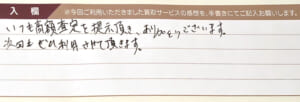 入欄
※今回ご利用いただきました買取サービスの感想を、手書きにてご記入お願いします。
いつも高額査定を提示頂き、ありがとうございます。
次回もぜひ利用させて頂きます。